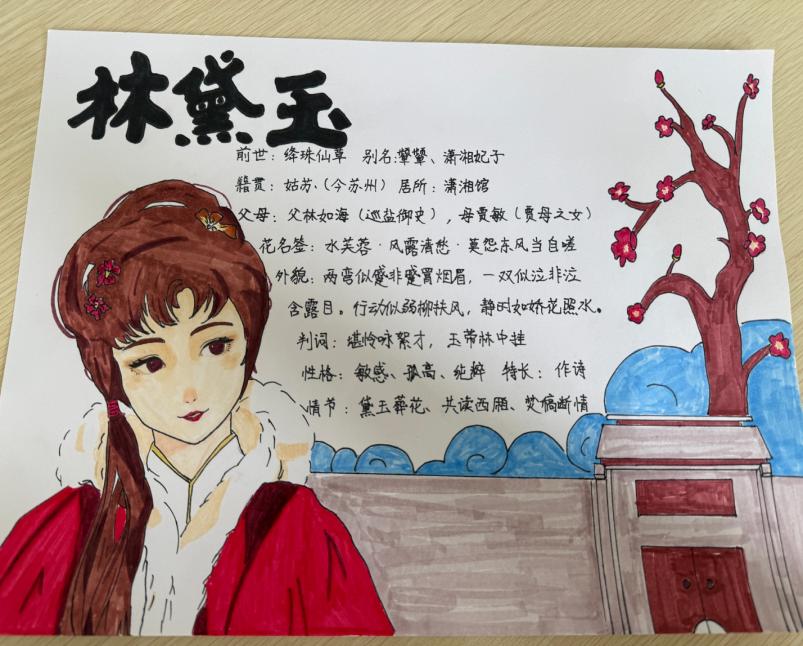 林黛玉
前世：绛珠仙草 别名：颦颦、潇湘妃子
籍贯：姑苏（今苏州） 居所：潇湘馆
父母：父林如海（巡盐御史），母贾敏（贾母之女）
花名签：水芙蓉·风露清愁·莫怨东风当自嗟
外貌：两弯似蹙非蹙罥烟眉，一双似泣非泣
含露目。行动似弱柳扶风，静时如娇花照水。
判词：堪怜咏絮才，玉带林中挂
性格：敏感、孤高、纯粹 特长：作诗
情节：黛玉葬花、共读西厢、焚稿断情